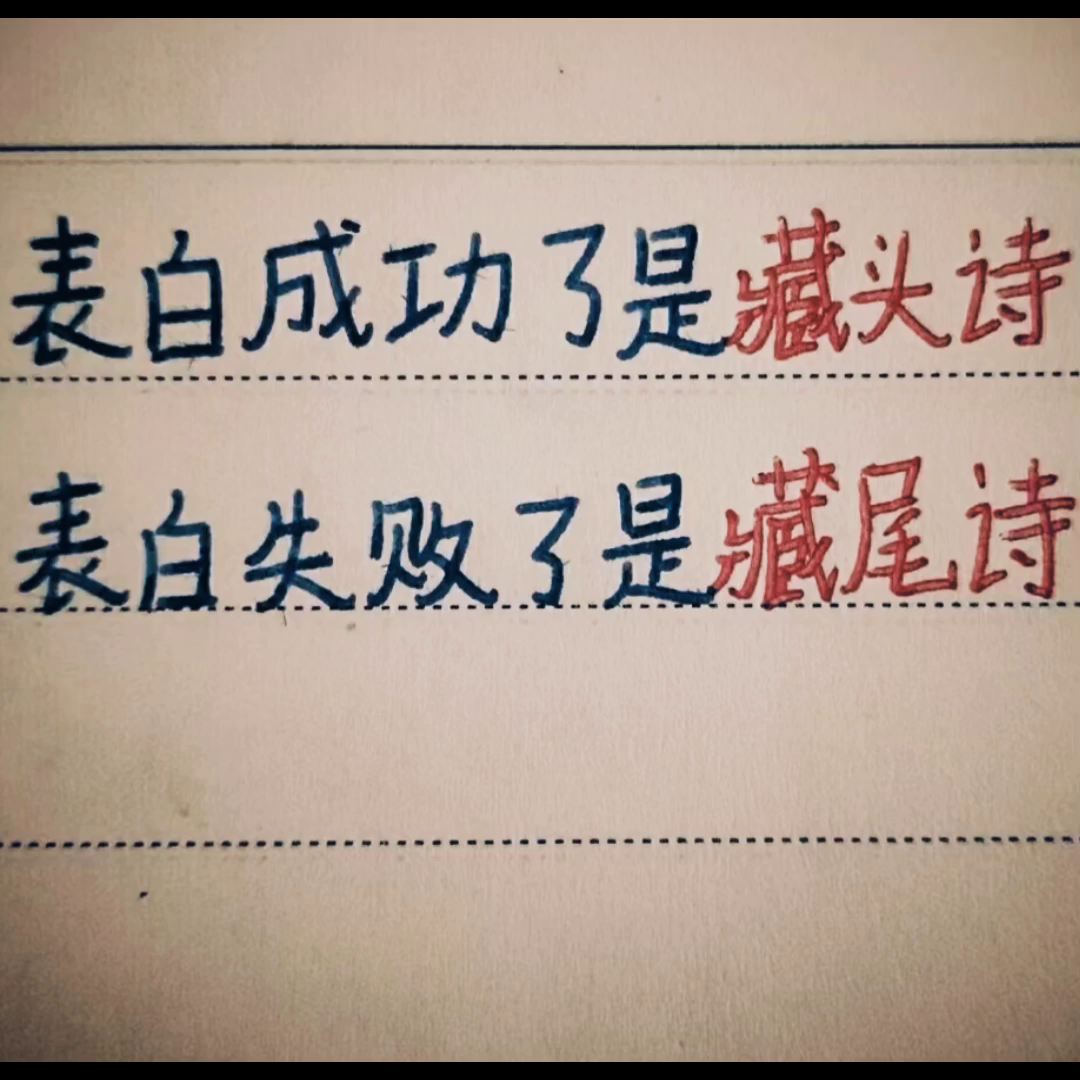 表白成功了是藏头诗
表白失败了是藏尾诗